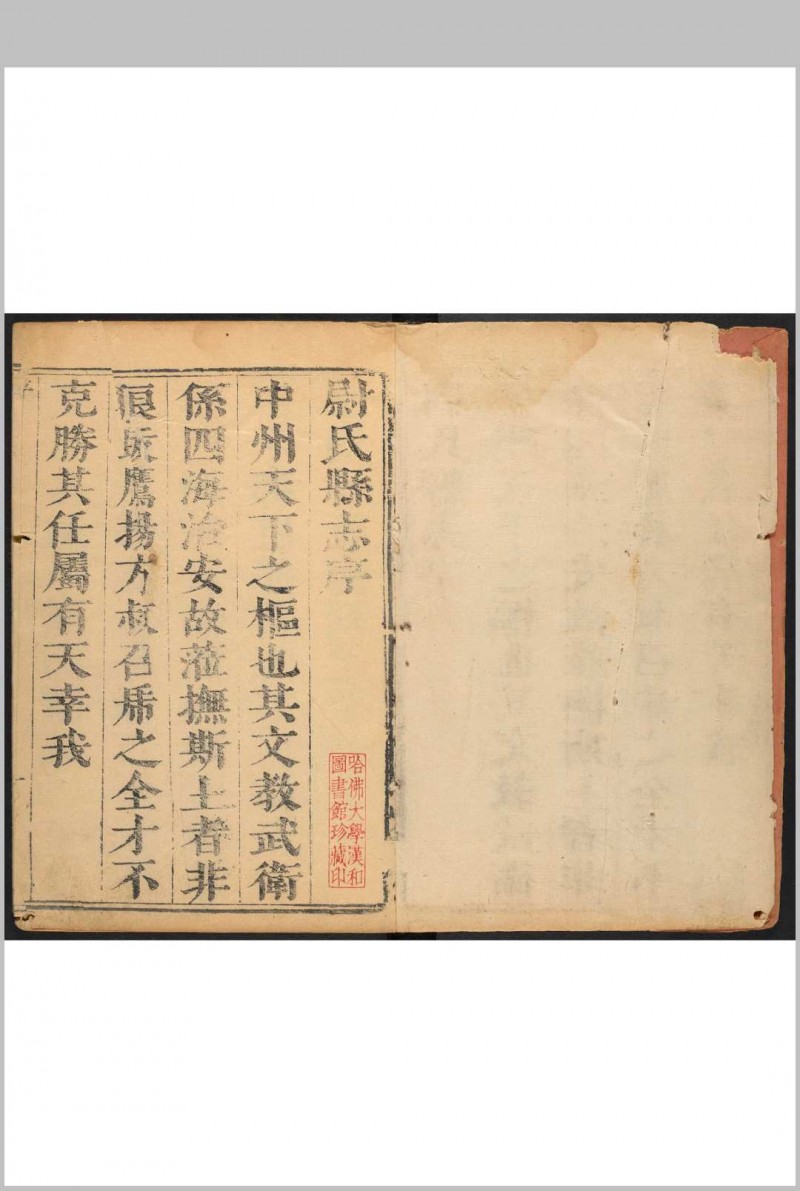 尉氏縣志序
中州天下之樞也其文教武衛
係四海治安故蒞撫斯土者非
鷹揚方叔召乕之全才不
克勝其任屬有天幸我
哈佛大學漢和
圖書館珍藏印